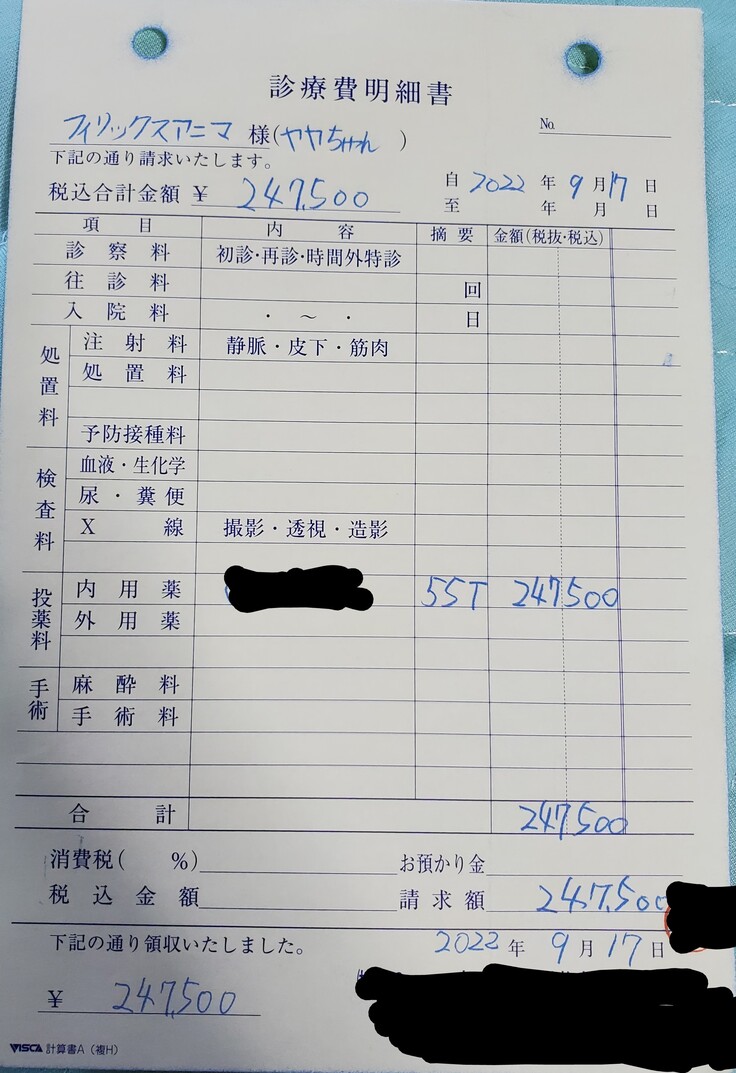 診療費明細書
フィリックスアニマ 様(ヤヤちゃん)
No.
下記の通り請求いたします。
税込合計金額 ¥ 247,500
自 2022 年 9 月 17 日
至 年 月 日
項目 内容 摘要 金額(税抜・税込)
診察料 初診・再診・時間外特診
往診料 回
入院料 ・ ～ ・ 日
処置料
注射料 静脈・皮下・筋肉
処置料
予防接種料
検査料
血液・生化学
尿・糞便
X線 撮影・透視・造影
投薬料
内用薬 55T 247500
外用薬
手術
麻酔料
手術料
合計 247500
消費税( %) お預かり金
税込金額 請求額 247,500
下記の通り領収いたしました。 2022 年 9 月 17 日
¥ 247,500
VISCA 計算書A（複H）